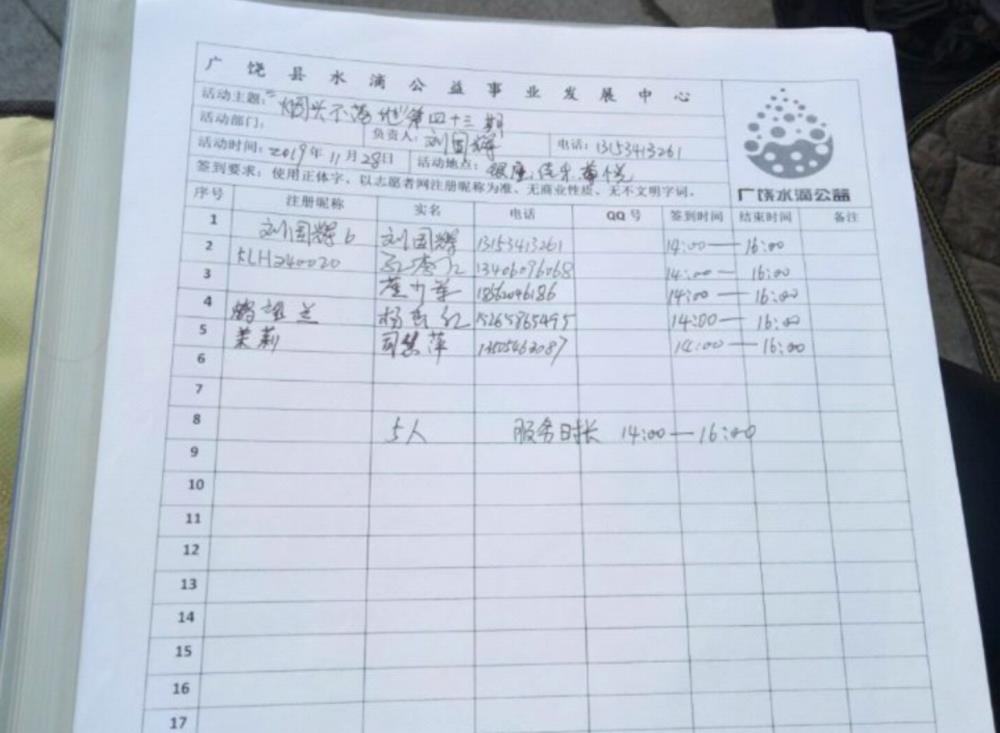 广饶县水滴公益事业发展中心
活动主题：“烟头不落地”第四十三期
活动部门： 负责人：刘国辉 电话：13153413261
活动时间：2019年11月28日 活动地点：银座、佳乐、
签到要求：使用正体字，以志愿者网注册昵称为准、无商业性质、无不文明字词。
广饶水滴公益
序号 注册昵称 实名 电话 QQ号 签到时间 结束时间 备注
1 刘国辉6 刘国辉 13153413261 14:00— 16:00
2 KLH240020 13406096068 14:00— 16:00
3 18562046186 14:00— 16:00
4 杨 红 15265865495 14:00— 16:00
5 茉莉 司慧萍 13505462087 14:00— 16:00
6
7
8 5人 服务时长 14:00—16:00
9
10
11
12
13
14
15
16
17